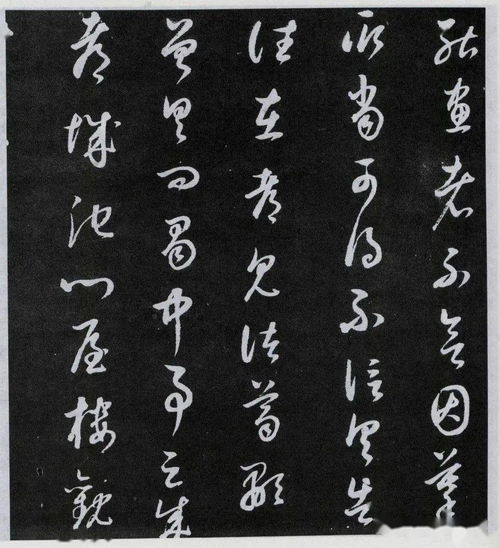 能畫者不欲因摹
取當可得不信具告
往在都見諸葛顒
曾具問蜀中事云成
都城池門屋樓觀